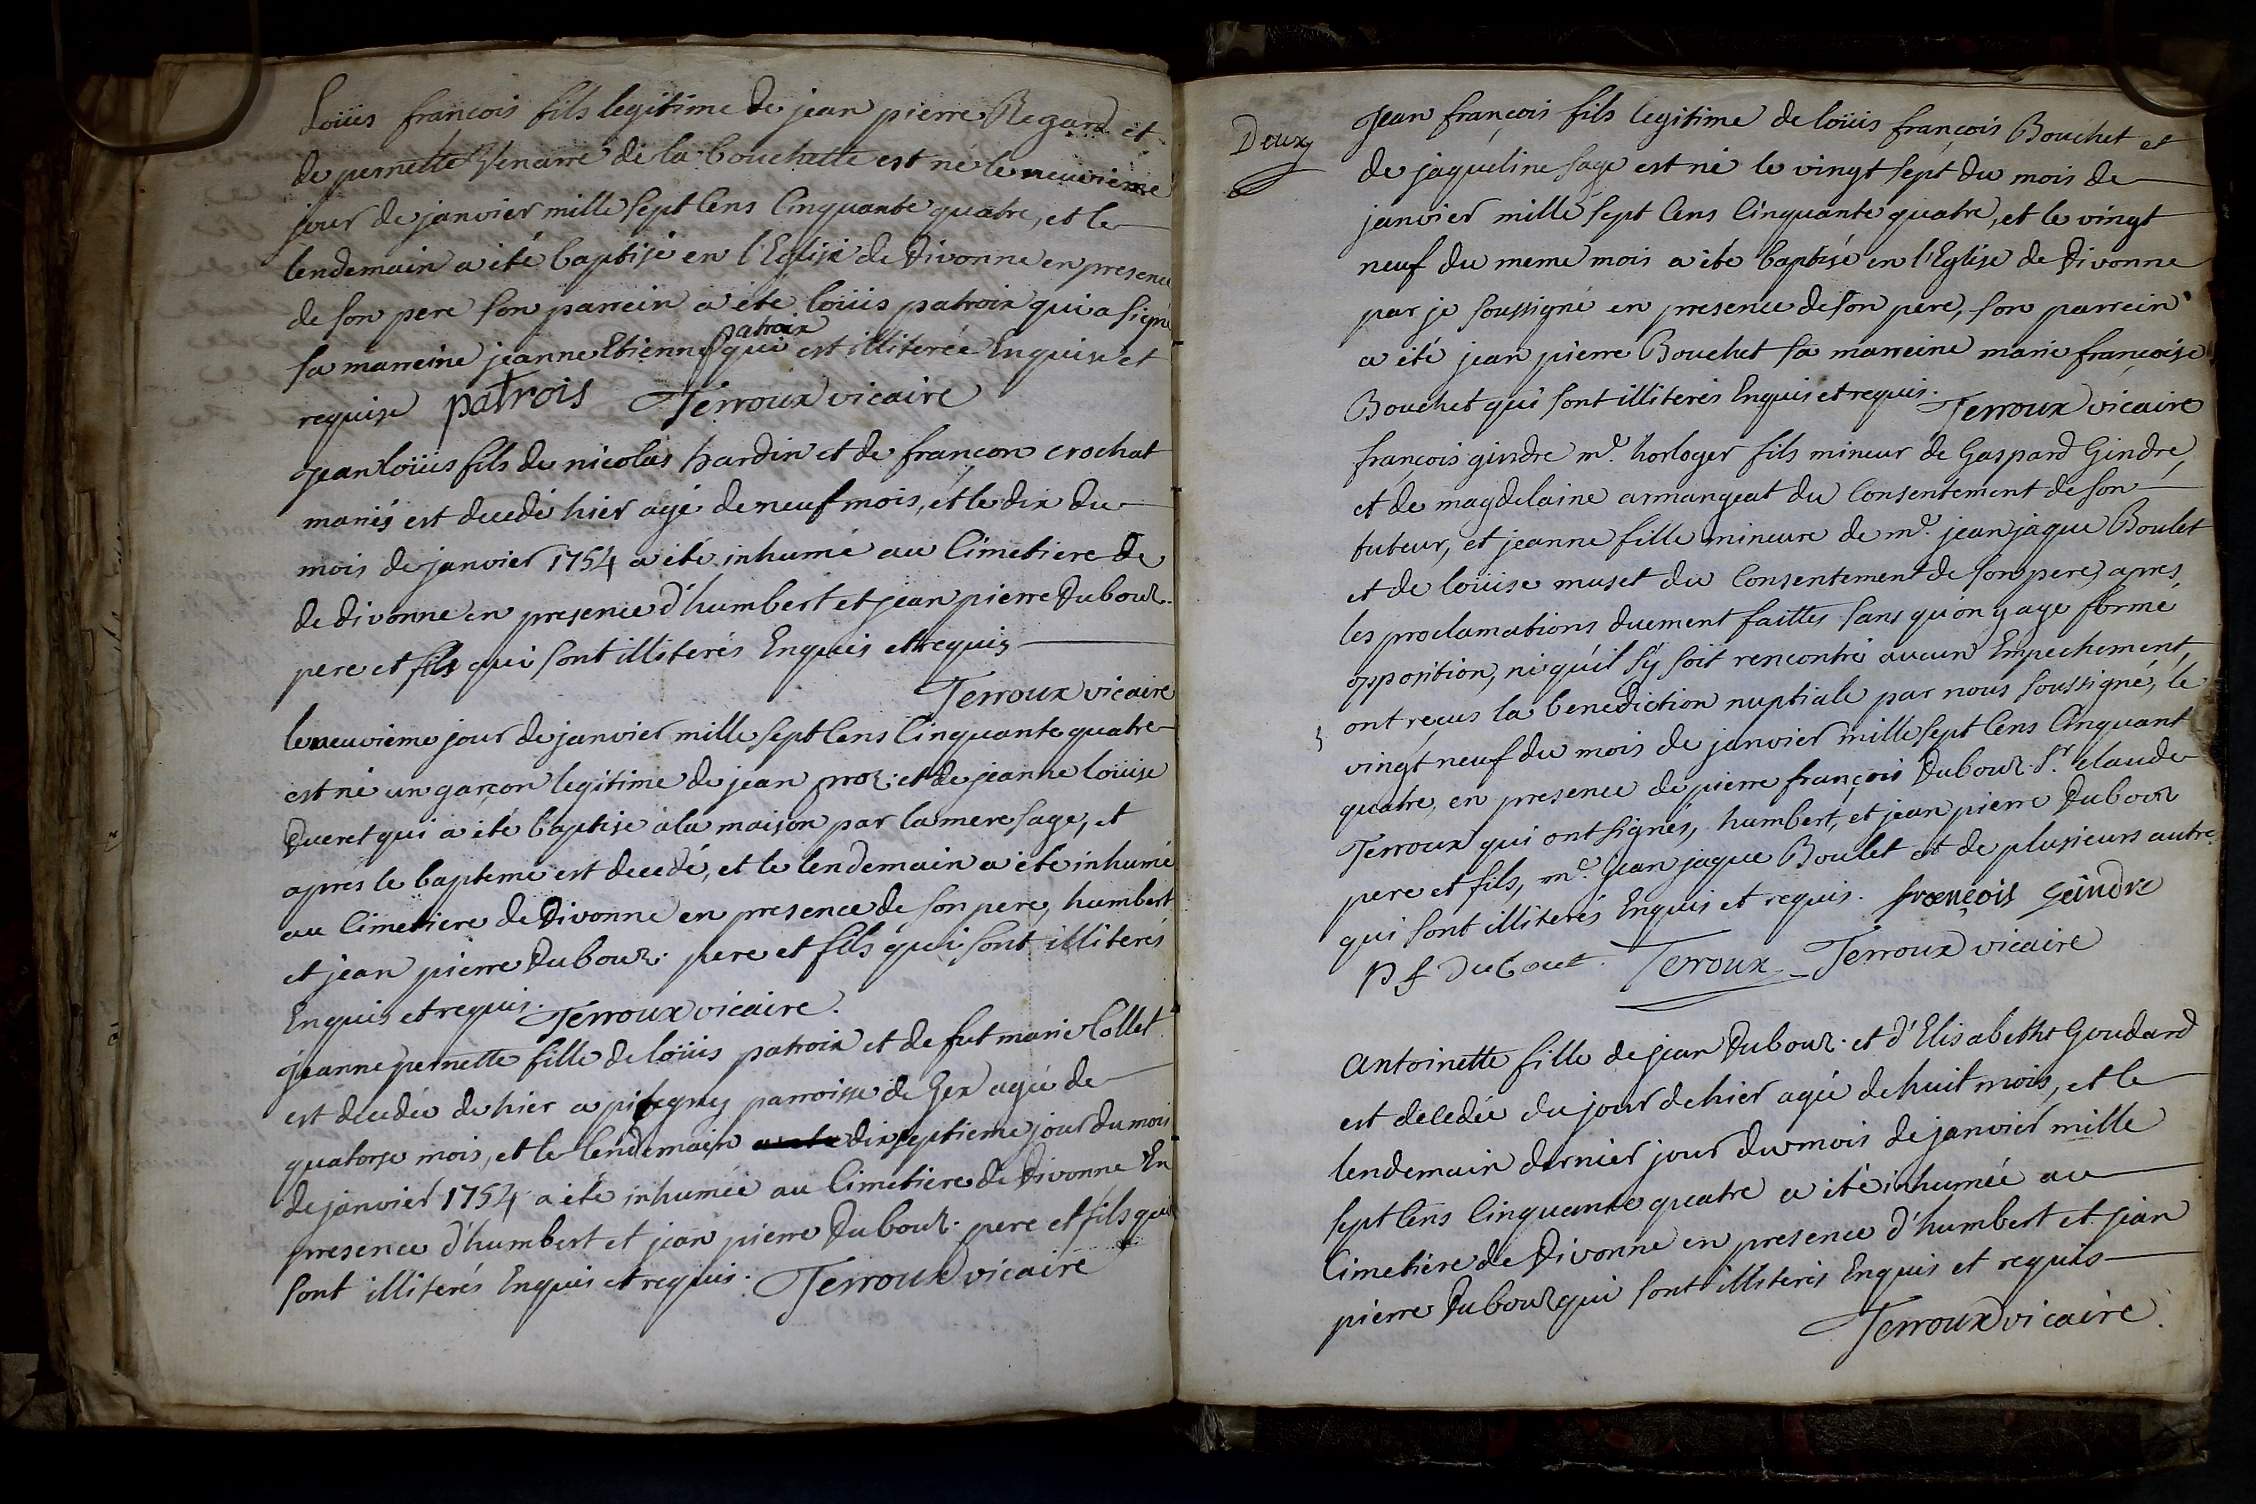 Loüis francois fils legitime de jean pierre Regard et
de pernette Venarre de la bouchette est né le neuvieme
jour de janvier mille sept Cens Cinquante quatre, et le
lendemain a été baptisé en l'Eglise de Divonne en presence
de son pere son parrein a été loüis patroix qui a signé
patroix
sa marreine jeanne Etienne qui est illiterée Enquise et
requise patrois Terroux vicaire
Jean loüis fils de nicolas hardin et de francon crochat
mariés est decedé hier agé de neuf mois, et le dix du
mois de janvier 1754 a été inhumé au Cimetiere de
de divonne en presence d'humbert et jean pierre Dubouz.
pere et fils qui sont illiterés Enquis et requis
Terroux vicaire
le neuvieme jour de janvier mille sept Cens Cinquante quatre
est né un garçon legitime de jean proz. et de jeanne loüise
Dueret qui a été baptisé à la maison par la mere sage, et
aprés le bapteme est decedé, et le lendemain a été inhumé
au Cimetiere de Divonne en presence de son pere, humbert
et jean pierre Dubouz. pere et fils qui sont illiterés
Enquis et requis. Terroux vicaire.
jeanne pernette fille de loüis patroix et de fut marie Collet
est decedée de hier a pitegny parroisse de Gex agée de
quatorze mois, et le lendemain dix septieme jour du mois
de janvier 1754 a été inhumée au Cimetiere de Divonne En
presence d'humbert et jean pierre Dubouz. pere et fils qui
sont illiterés Enquis et requis. Terroux vicaire
Deux
Jean françois fils legitime de loüis françois Bouchet et
de jaqueline sage est né le vingt sept du mois de
janvier mille sept Cens Cinquante quatre, et le vingt
neuf du meme mois a été baptisé en l'Eglise de Divonne
par je soussigné en presence de son pere, son parrein
a été jean pierre Bouchet sa marreine marie françoise
Bouchet qui sont illiterés Enquis et requis. Terroux vicaire
françois gindre me. horloger fils mineur de Gaspard Gindre,
et de magdelaine armangeat du Consentement de son
tuteur, et jeanne fille mineure de me. jean jaque Boulet
et de loüise muset du Consentement de son pere, apres
les proclamations duement faittes sans qu'on y aye formé
opposition, ni qu'il s'y soit rencontré aucun Empechement,
ont reçus la benediction nuptiale par nous soussigné, le
vingt neuf du mois de janvier mille sept Cens Cinquant
quatre, en presence de pierre françois Dubouz. Sr. claude
Terroux qui ont signés, humbert, et jean pierre Dubouz
pere et fils, me. jean jaque Boulet et de plusieurs autre
qui sont illiterés Enquis et requis. françois Geindre
p f Dubout. Terroux Terroux vicaire
Antoinette fille de jean Dubouz. et d'Elisabetht Goudard
est decedée du jour de hier agée de huit mois, et le
lendemain dernier jour du mois de janvier mille
sept Cens Cinquante quatre a été inhumée au
Cimetiere de Divonne en presence d'humbert et jean
pierre Dubouz qui sont illiterés Enquis et requis
Terroux vicaire.